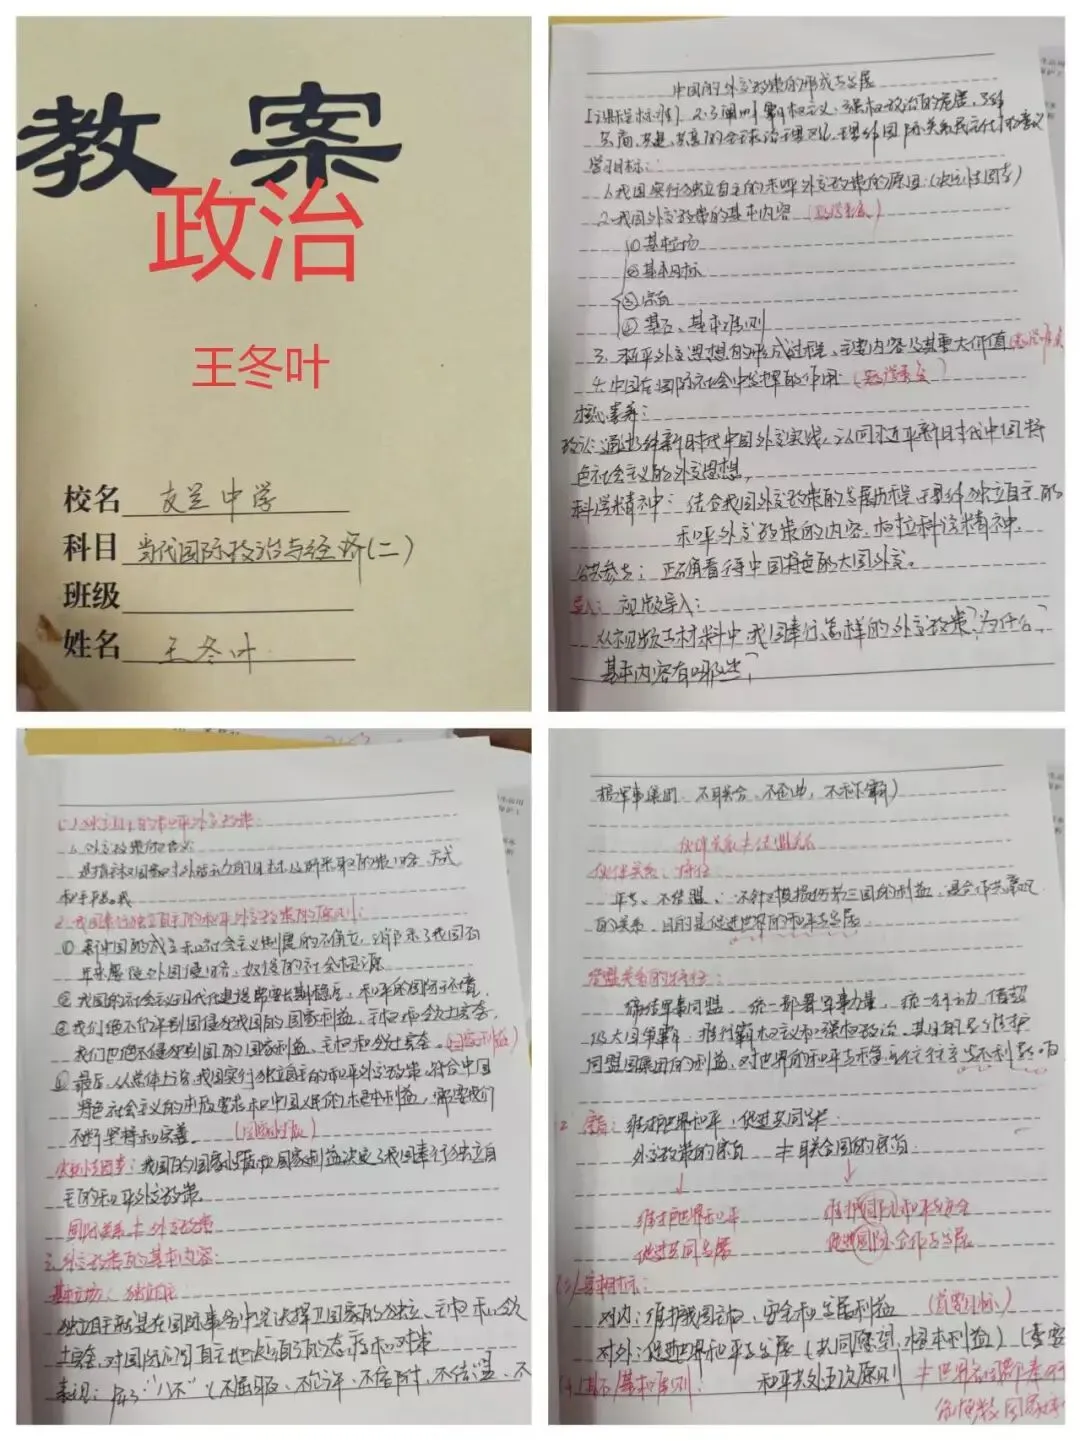 教案
政治
王冬叶
校名 友兰中学
科目 当代国际政治与经济(二)
班级
姓名 王冬叶
中国的外交政策的形成与发展
学习目标:
1.我国实行独立自主的和平外交政策的原因:(决定性因素)
2.我国外交政策的基本内容
①基本立场
②基本目标
③宗旨
④基石、基本准则
3.和平外交思想的形成过程、主要内容及其重大价值
4.中国在国际社会中发挥的作用
核心素养:
政认:通过了解新时代中国外交实践,认同习近平新时代中国特
色社会主义的外交思想,
科学精神:结合我国外交政策的发展历程,理解独立自主的
和平外交政策的内容,树立科学精神.
公共参与:正确看待中国特色的大国外交。
导入:视频导入:
从视频与材料中我国奉行怎样的外交政策?为什么?
基本内容有哪些?
(一)独立自主的和平外交政策:
1.外交政策的含义
2.我国奉行独立自主的和平外交政策的原则:
①新中国的成立和社会主义制度的确立,消除了我国百
年来屡受外国侵略、奴役的社会根源
②我国的社会主义现代化建设需要长期稳定、和平的国际环境,
③我们绝不允许别国侵犯我国的国家利益、主权和领土完整,
我们也绝不侵犯别国的国家利益、主权和领土完整。(国家利益)
④最后,从总体上说,我国实行独立自主的和平外交政策,符合中国
特色社会主义的本质要求和中国人民的根本利益,需要我们
不断坚持和完善。
决定性因素:我国的国家性质和国家利益决定了我国奉行独立自
主的和平外交政策
国际关系与外交政策
三、外交政策的基本内容:
基本立场:独立自主
独立自主就是在国际事务中坚决捍卫国家的独立、主权和领
土完整,对国际问题自主地决定自己的态度和对策
表现:"八不"(不屈服、不允许、不依附、不结盟、不
搞军事集团、不联合、不备冲,不称霸)
伙伴关系与结盟关系
伙伴关系:特征
平等、不结盟、不针对和损害第三国的利益,是合作共赢
的关系,目的是促进世界的和平与发展。
结盟关系的特征:
缔结军事同盟,统一部署军事力量,统一行动,借助
超级大国争霸,推行霸权主义和强权政治,其目的是维护
同盟国集团的利益,对世界的和平与稳定往往产生不利影响
2.宗旨:维护世界和平,促进共同发展
外交政策的宗旨 ≠ 联合国的宗旨
维护世界和平 维护国际和平与安全
促进共同发展 促进国际合作与发展
(3)基本目标:
对内:维护我国主权、安全和发展利益 (首要目标)
对外:促进世界和平与发展(共同愿望,根本利益)
(4)基石/基本准则: 和平共处五项原则